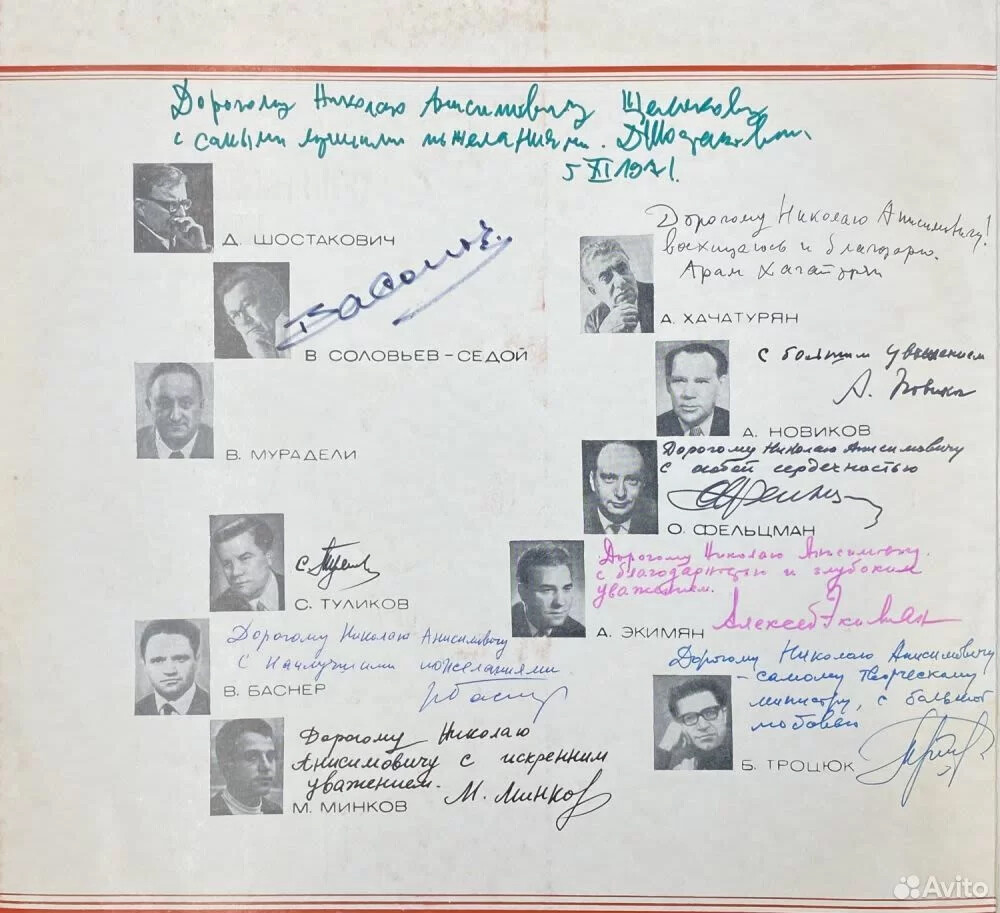 Дорогому Николаю Анисимовичу Щелокову
с самыми лучшими пожеланиями. ДШостакович.
5 XI 1971.
Д. ШОСТАКОВИЧ
Дорогому Николаю Анисимовичу!
восхищаюсь и благодарю.
Арам Хачатурян
А. ХАЧАТУРЯН
В СОЛОВЬЕВ-СЕДОЙ
С большим уважением
А. Новиков
А. НОВИКОВ
В. МУРАДЕЛИ
Дорогому Николаю Анисимовичу
с особой сердечностью
О. ФЕЛЬЦМАН
С. ТУЛИКОВ
Дорогому Николаю Анисимовичу.
с благодарностью и глубоким
уважением.
Алексей Экимян
А. ЭКИМЯН
Дорогому Николаю Анисимовичу
с наилучшими пожеланиями
В. БАСНЕР
Дорогому Николаю Анисимовичу
- самому творческому
министру, с большой
любовью
Б. ТРОЦЮК
Дорогому Николаю
Анисимовичу с искренним
уважением.
М. Минков
М. МИНКОВ
Avito